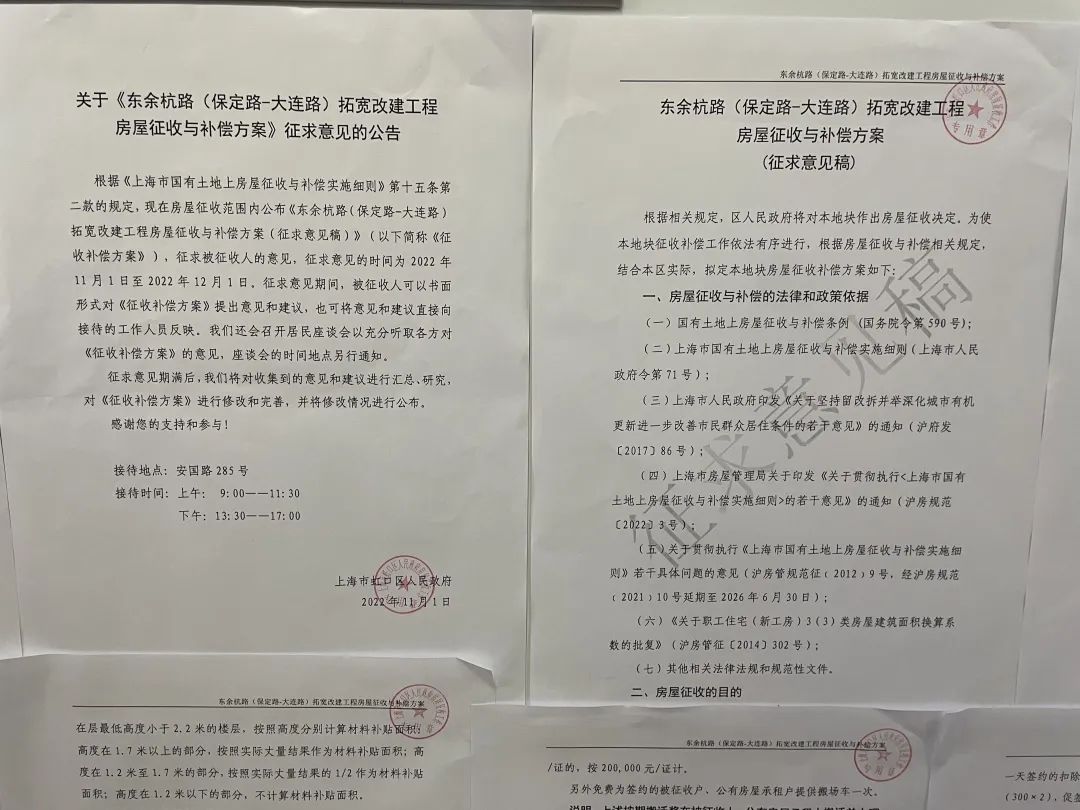 关于《东余杭路（保定路-大连路）拓宽改建工程
房屋征收与补偿方案》征求意见的公告
根据《上海市国有土地上房屋征收与补偿实施细则》第十五条第
二款的规定，现在房屋征收范围内公布《东余杭路（保定路-大连路）
拓宽改建工程房屋征收与补偿方案（征求意见稿）》（以下简称《征
收补偿方案》），征求被征收人的意见，征求意见的时间为 2022 年
11 月 1 日至 2022 年 12 月 1 日。征求意见期间，被征收人可以书面
形式对《征收补偿方案》提出意见和建议，也可将意见和建议直接向
接待的工作人员反映。我们还会召开居民座谈会以充分听取各方对
《征收补偿方案》的意见，座谈会的时间地点另行通知。
征求意见期满后，我们将对收集到的意见和建议进行汇总、研究，
对《征收补偿方案》进行修改和完善，并将修改情况进行公布。
感谢您的支持和参与！
接待地点：安国路 285 号
接待时间：上午： 9:00——11:30
下午：13:30——17:00
上海市虹口区人民政府
2022 年 11 月 1 日
东余杭路（保定路-大连路）拓宽改建工程房屋征收与补偿方案
东余杭路（保定路-大连路）拓宽改建工程
房屋征收与补偿方案
（征求意见稿）
专用章
根据相关规定，区人民政府将对本地块作出房屋征收决定。为使
本地块征收补偿工作依法有序进行，根据房屋征收与补偿相关规定，
结合本区实际，拟定本地块房屋征收补偿方案如下：
一、房屋征收与补偿的法律和政策依据
（一）国有土地上房屋征收与补偿条例（国务院令第 590 号）；
（二）上海市国有土地上房屋征收与补偿实施细则（上海市人民
政府令第 71 号）；
（三）上海市人民政府印发《关于坚持留改拆并举深化城市有机
更新进一步改善市民群众居住条件的若干意见》的通知（沪府发
〔2017〕86 号）；
（四）上海市房屋管理局关于印发《关于贯彻执行<上海市国有
土地上房屋征收与补偿实施细则>的若干意见》的通知（沪房规范
〔2022〕3 号）；
（五）关于贯彻执行《上海市国有土地上房屋征收与补偿实施细
则》若干具体问题的意见（沪房管规范征〔2012〕9 号，经沪房规范
〔2021〕10 号延期至 2026 年 6 月 30 日）；
（六）《关于职工住宅（新工房）3（3）类房屋建筑面积换算系
数的批复》（沪房管征〔2014〕302 号）；
（七）其他相关法律法规和规范性文件。
二、房屋征收的目的
征求意见稿
东余杭路（保定路-大连路）拓宽改建工程房屋征收与补偿方案
在层最低高度小于 2.2 米的楼层，按照高度分别计算材料补贴面积：
高度在 1.7 米以上的部分，按照实际丈量结果作为材料补贴面积；高
度在 1.2 米至 1.7 米的部分，按照实际丈量结果的 1/2 作为材料补贴
面积；高度在 1.2 米以下的部分，不计算材料补贴面积。
东余杭路（保定路-大连路）拓宽改建工程房屋征收与补偿方案
专用章
/证的，按 200,000 元/证计。
另外免费为签约的被征收户、公有房屋承租户提供搬场车一次。
一天签约的扣除
（300×2），促签